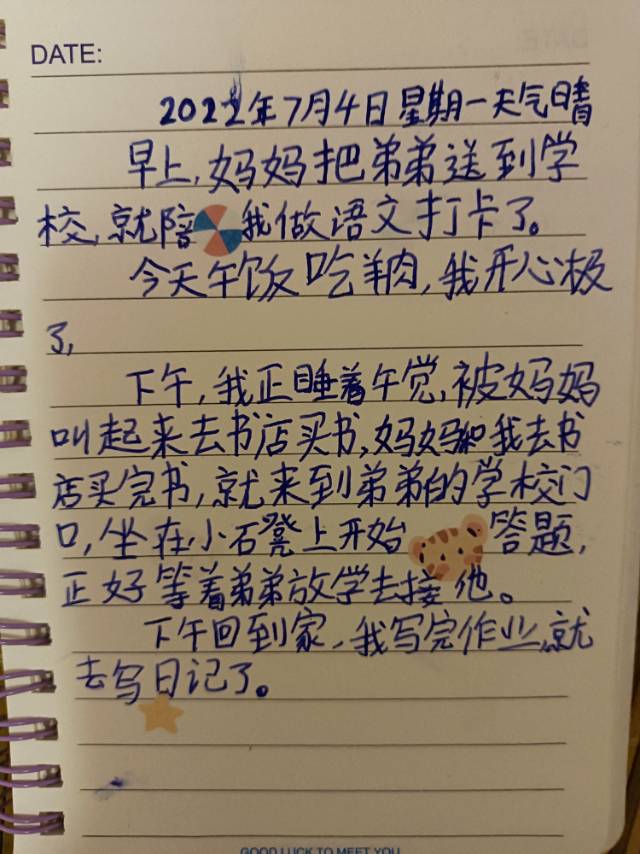 DATE:
2022年7月4日星期一天气晴
早上,妈妈把弟弟送到学
校,就陪我做语文打卡了。
今天午饭吃羊肉,我开心极
了,
下午,我正睡着午觉,被妈妈
叫起来去书店买书,妈妈和我去书
店买完书,就来到弟弟的学校门
口,坐在小石凳上开始答题,
正好等着弟弟放学去接他。
下午回到家,我写完作业,就
去写日记了。
GOOD LUCK TO MEET YOU